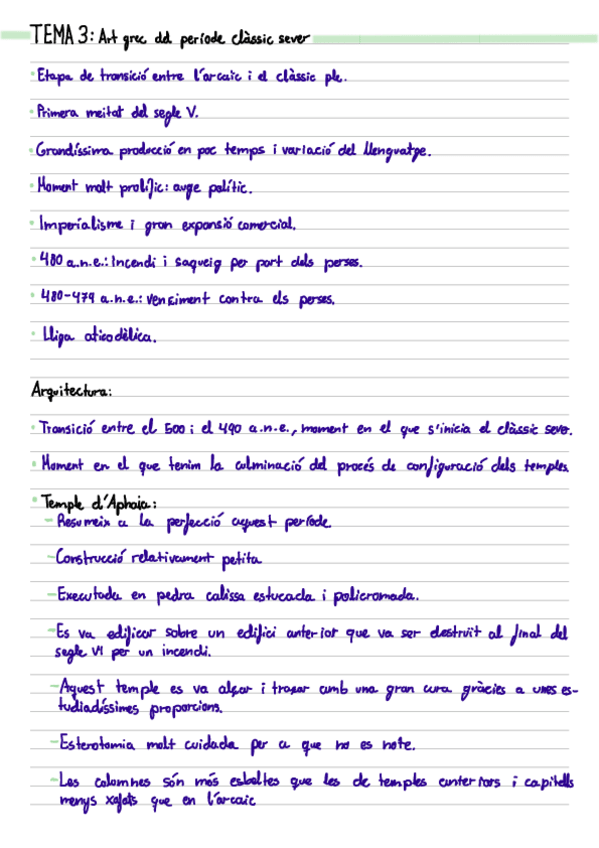 TEMA 3: Art grec del període clàssic sever
· Etapa de transició entre l'arcaic i el clàssic ple.
· Primera meitat del segle V.
· Grandíssima producció en poc temps i variació del llenguatge.
· Moment molt prolífic: auge polític.
· Imperialisme i gran expansió comercial.
· 480 a.n.e.: Incendi i saqueig per part dels perses.
· 480-479 a.n.e.: Venciment contra els perses.
· Lliga aticodèlica.
Arquitectura:
· Transició entre el 500 i el 490 a.n.e., moment en el que s'inicia el clàssic sever.
· Moment en el que tenim la culminació del procés de configuració dels temples.
· Temple d'Aphaia:
- Resumeix a la perfecció aquest període.
- Construcció relativament petita
- Executada en pedra calissa estucada i policromada.
- Es va edificar sobre un edifici anterior que va ser destruït al final del
segle VI per un incendi.
- Aquest temple es va alçar i traçar amb una gran cura gràcies a unes es-
tudiadíssimes proporcions.
- Esterotomia molt cuidada per a que no es note.
- Les columnes són més esbeltes que les de temples anteriors i capitells
menys xafats que en l'arcaic